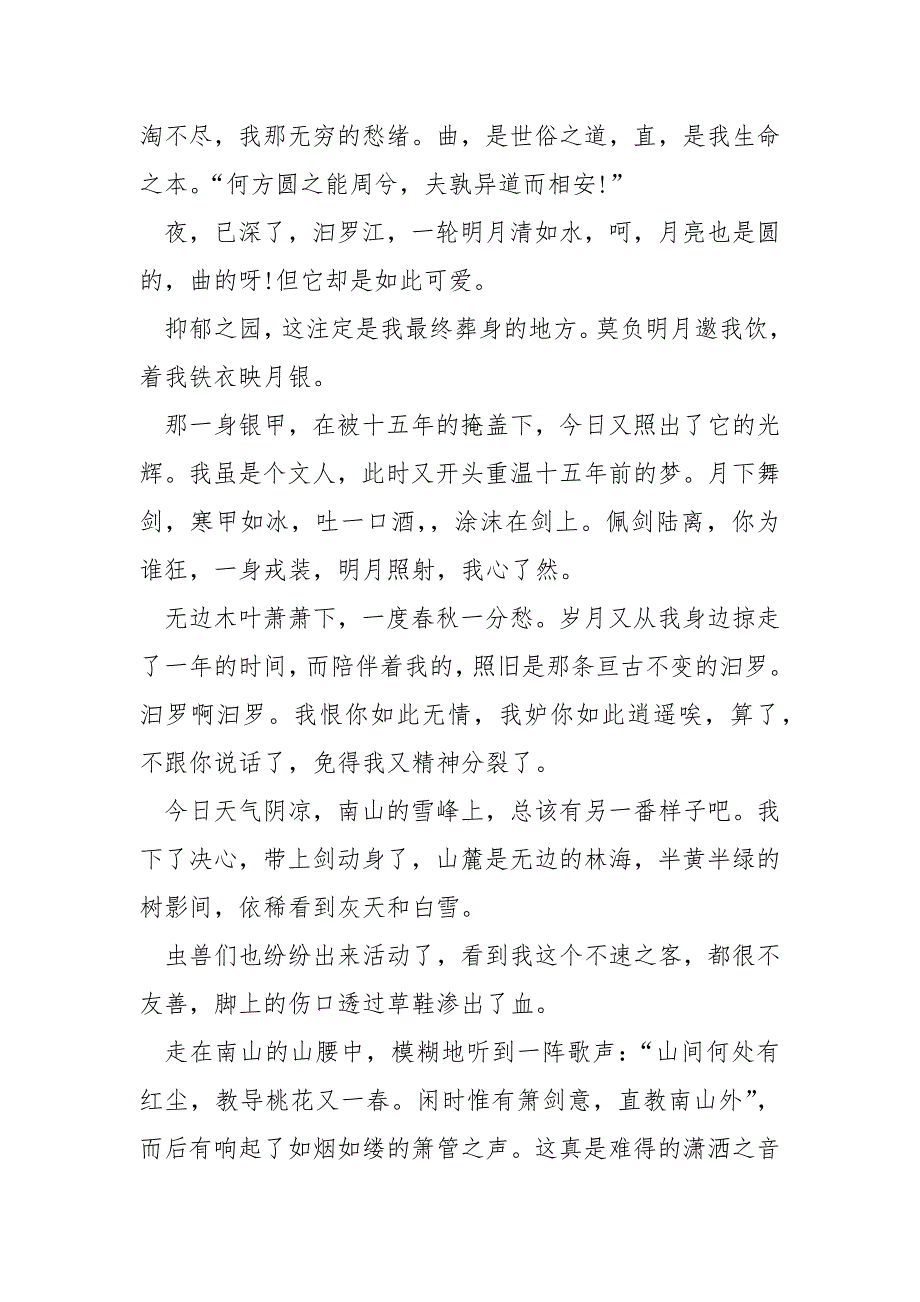 淘不尽，我那无穷的愁绪。曲，是世俗之道，直，是我生命
之本。“何方圆之能周兮，夫孰异道而相安!”
夜，已深了，汩罗江，一轮明月清如水，呵，月亮也是圆
的，曲的呀!但它却是如此可爱。
抑郁之园，这注定是我最终葬身的地方。莫负明月邀我饮，
着我铁衣映月银。
那一身银甲，在被十五年的掩盖下，今日又照出了它的光
辉。我虽是个文人，此时又开头重温十五年前的梦。月下舞
剑，寒甲如冰，吐一口酒，，涂沫在剑上。佩剑陆离，你为
谁狂，一身戎装，明月照射，我心了然。
无边木叶萧萧下，一度春秋一分愁。岁月又从我身边掠走
了一年的时间，而陪伴着我的，照旧是那条亘古不变的汩罗。
汩罗啊汩罗。我恨你如此无情，我妒你如此逍遥唉，算了，
不跟你说话了，免得我又精神分裂了。
今日天气阴凉，南山的雪峰上，总该有另一番样子吧。我
下了决心，带上剑动身了，山麓是无边的林海，半黄半绿的
树影间，依稀看到灰天和白雪。
虫兽们也纷纷出来活动了，看到我这个不速之客，都很不
友善，脚上的伤口透过草鞋渗出了血。
走在南山的山腰中，模糊地听到一阵歌声：“山间何处有
红尘，教导桃花又一春。闲时惟有箫剑意，直教南山外”，
而后有响起了如烟如缕的箫管之声。这真是难得的潇洒之音